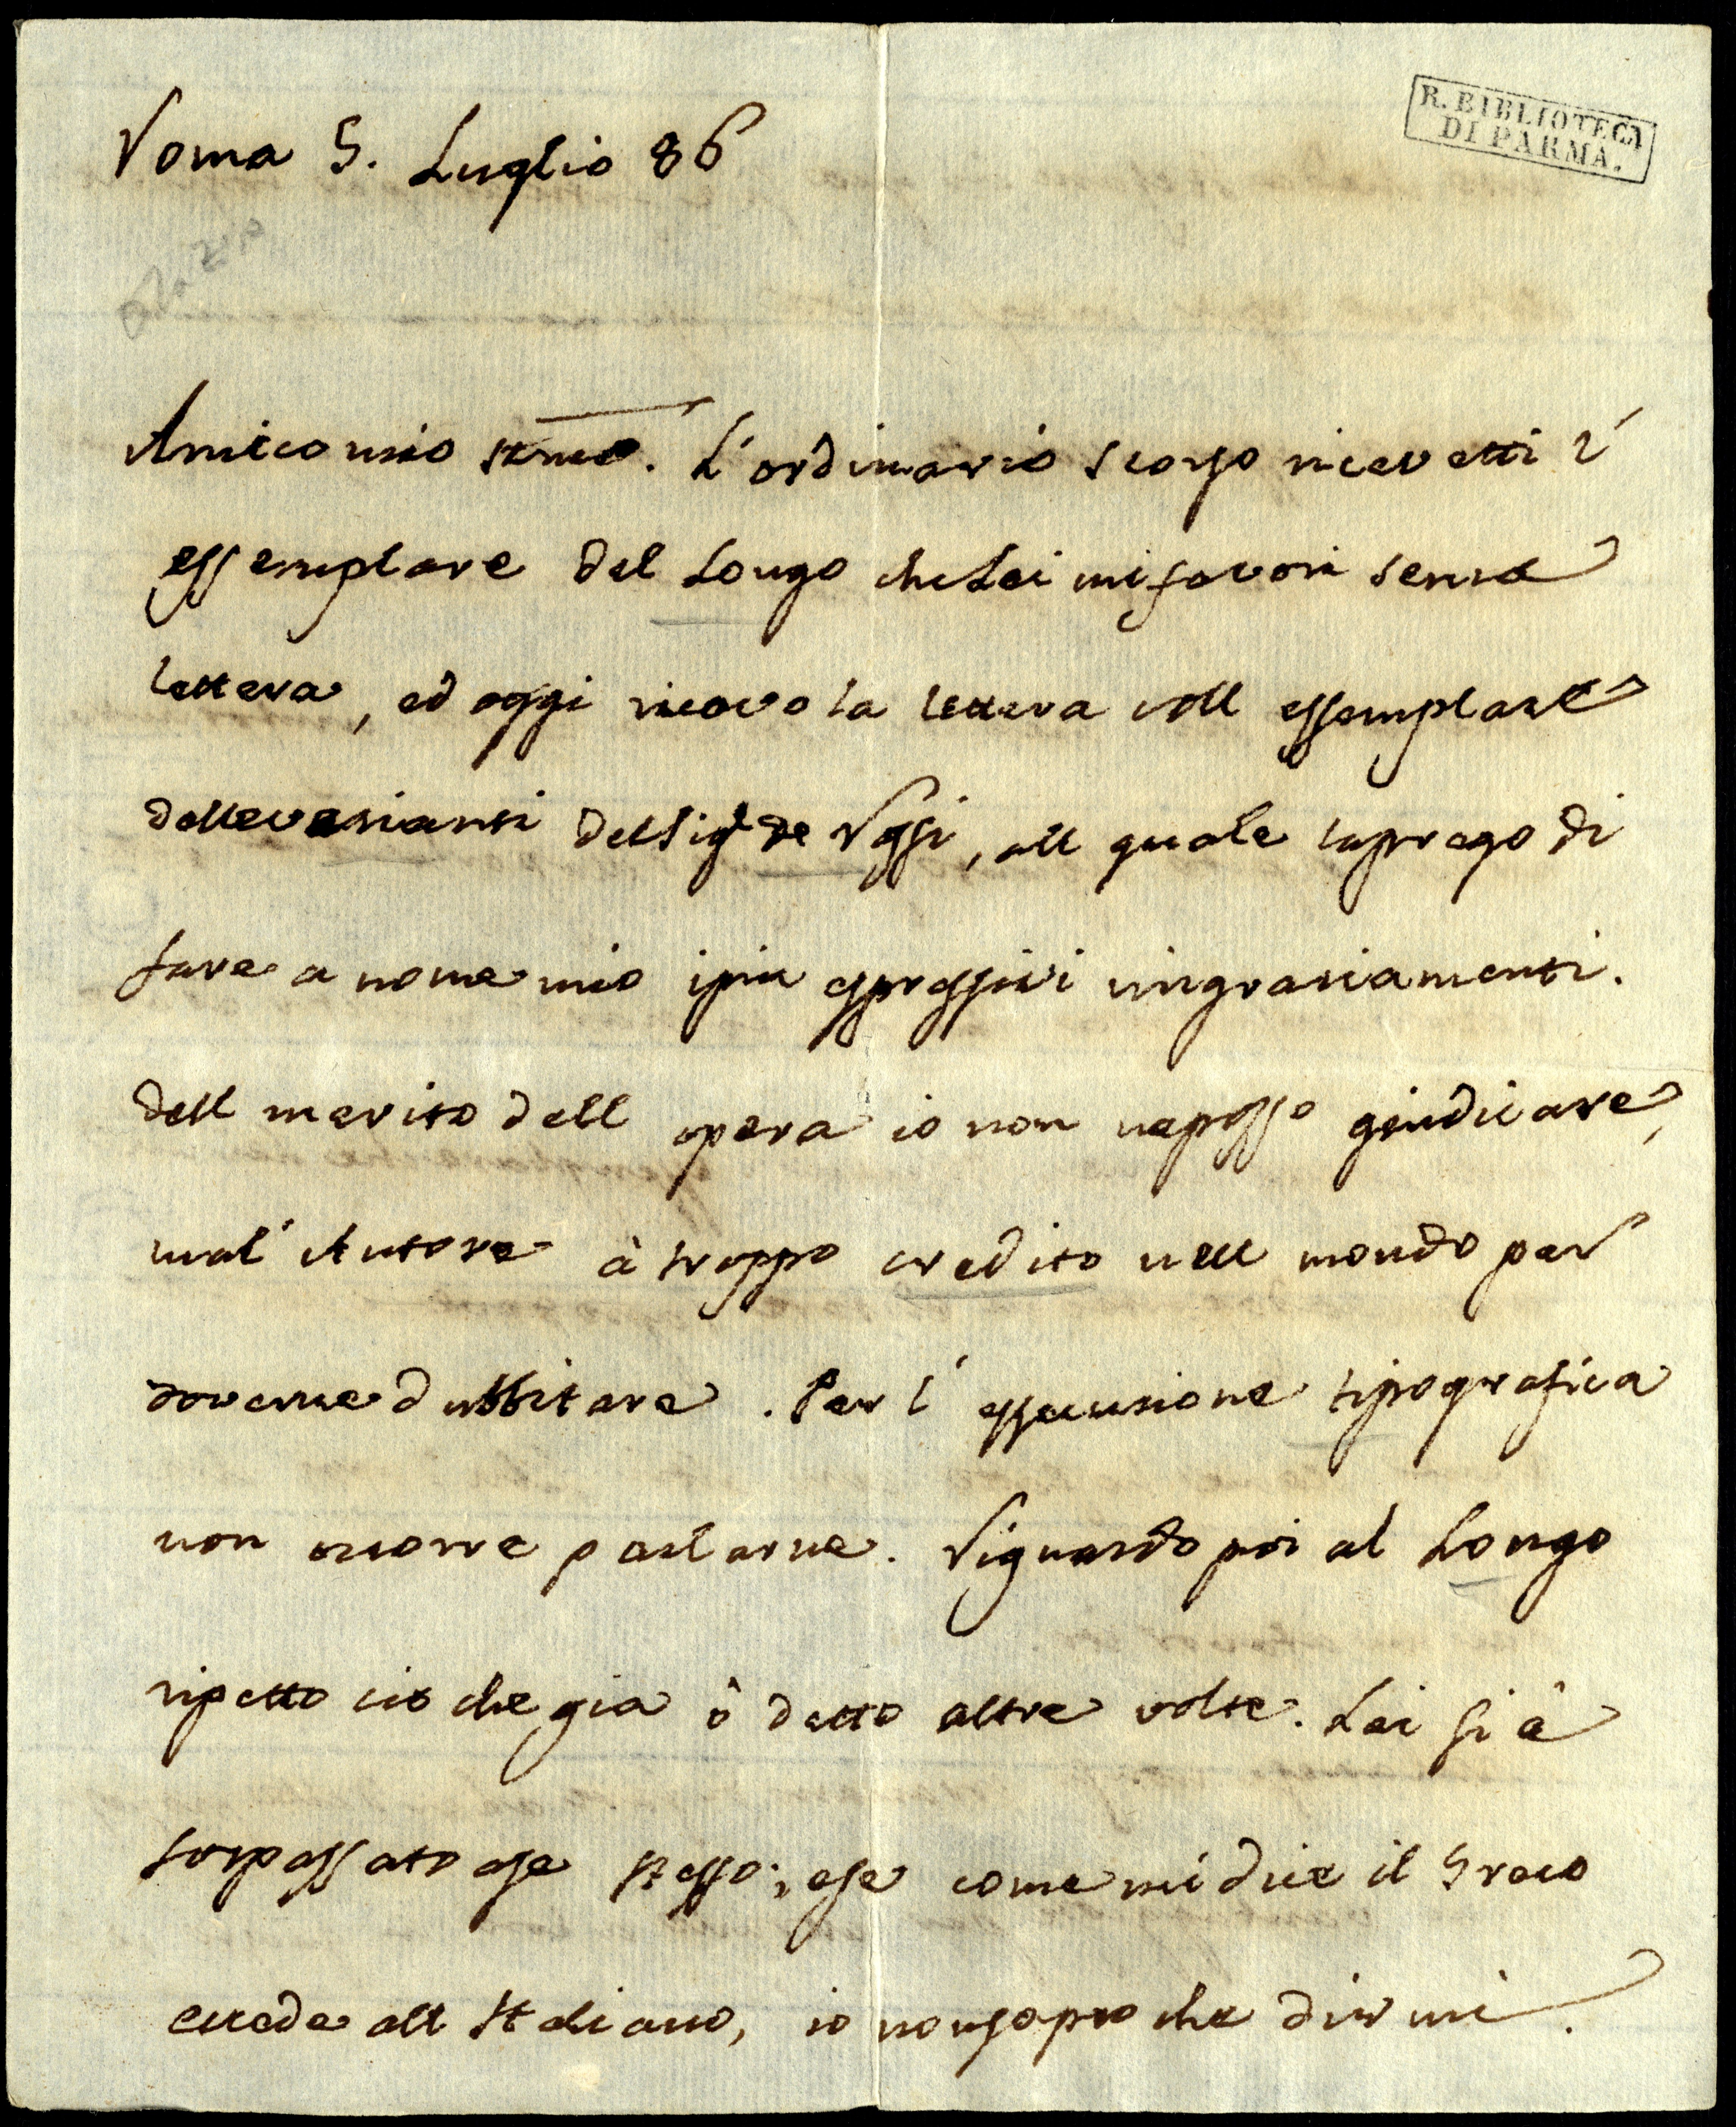 Roma 5. Luglio 86
R. BIBLIOTECA
DI PARMA.
Azara
Amico mio stmo. L'ordinario scorso ricevetti l'
essemplare del Longo che Lei mi favorì senza
lettera, ed oggi ricevo la lettera coll essemplare
delle varianti del Sigr de Rossi, all quale la prego di
fare a nome mio i piu espressivi ringraziamenti.
dell merito dell opera io non ne posso giudicare,
ma l'Autore à troppo credito nell mondo per
doverne dubbitare. Per l'essecuzione tipografica
non ocorre parlarne. Riguardo poi al Longo
ripetto ciò che gia ô detto altre volte. Lei si â
sorpassato a se stesso; e se come mi dice il Greco
eccede all Italiano, io non sapro che dirmi.